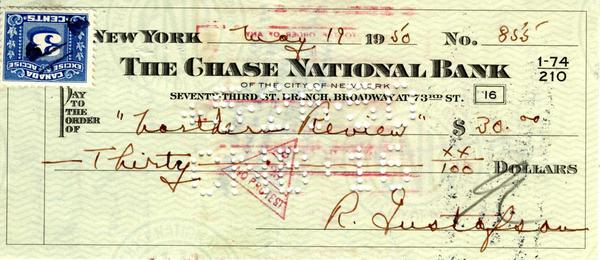 NEW YORK May 19 1950 No. 855
THE CHASE NATIONAL BANK
1-74
210
OF THE CITY OF NEW YORK
SEVENTY-THIRD ST. BRANCH, BROADWAY AT 73RD ST. 16
PAY
TO THE
ORDER
OF "Northern Review" $ 30.00
Thirty xx/100 DOLLARS
R. Gustafson
CANADA
EXCISE
3
CENTS
NO PROTEST